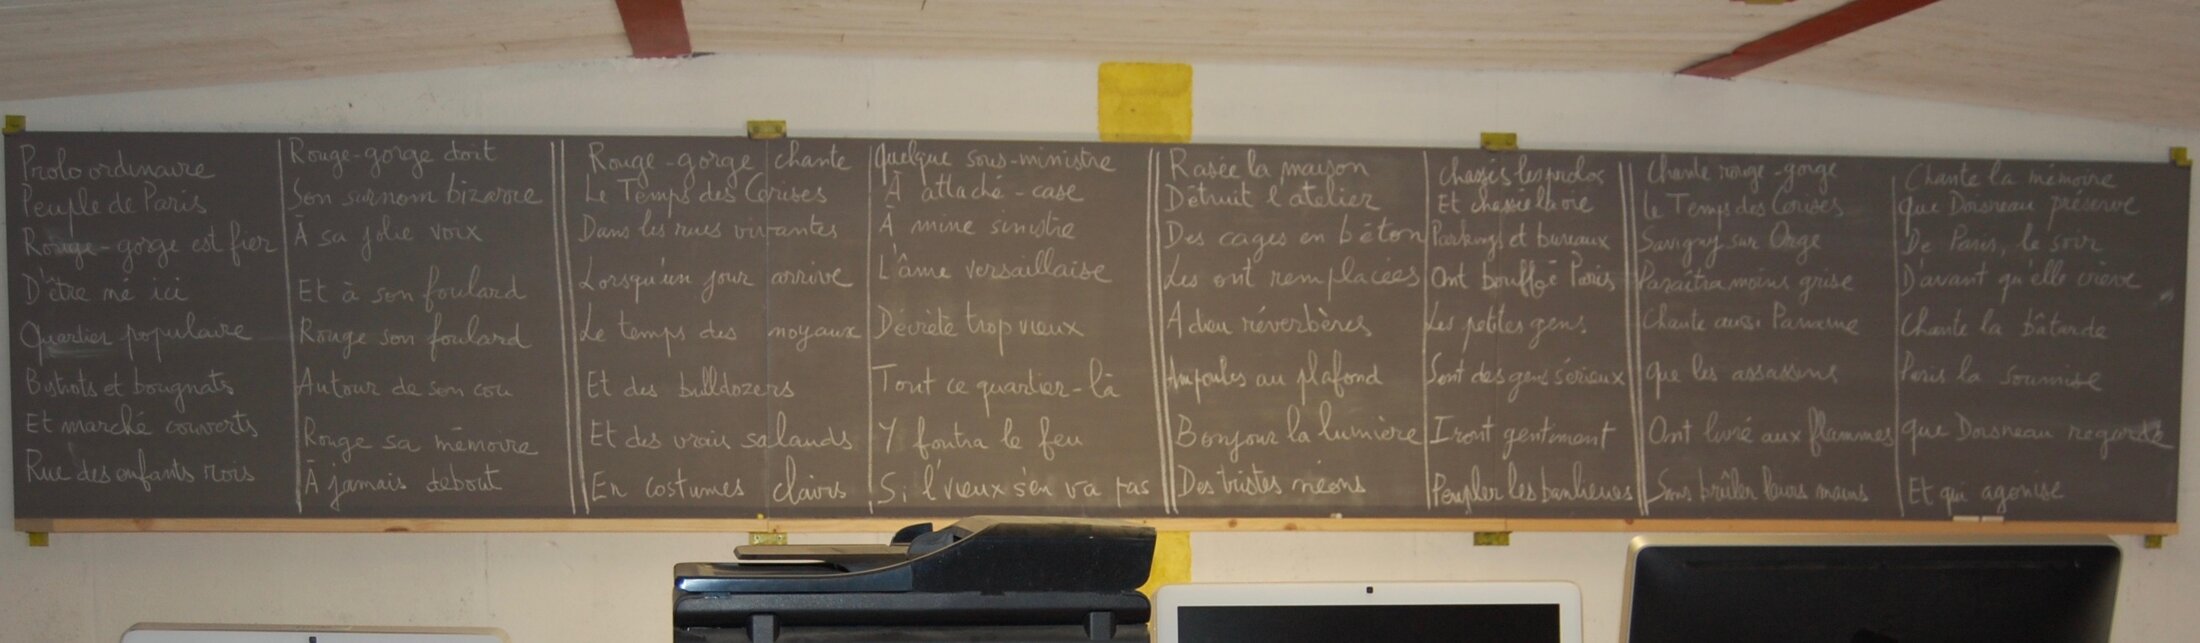 Prolo ordinaire
Peuple de Paris
Rouge-gorge est fier
D'être né ici
Quartier populaire
Bistrots et bougnats
Et marché couverts
Rue des enfants rois
Rouge-gorge doit
Son surnom bizarre
À sa jolie voix
Et à son foulard
Rouge son foulard
Autour de son cou
Rouge sa mémoire
À jamais debout
Rouge-gorge chante
Le Temps des Cerises
Dans les rues vivantes
Lorsqu'un jour arrive
Le temps des noyaux
Et des bulldozers
Et des vrais salauds
En costumes clairs
Quelque sous-ministre
À attaché-case
À mine sinistre
L'âme versaillaise
Décrète trop vieux
Tout ce quartier-là
Y foutra le feu
Si l'vieux s'en va pas
Rasée la maison
Détruit l'atelier
Des cages en béton
Les ont remplacées
Adieu réverbères
Ampoules au plafond
Bonjour la lumière
Des tristes néons
Chassés les prolos
Et chassée la vie
Parkings et bureaux
Ont bouffé Paris
Les petites gens
Sont des gens sérieux
Iront gentiment
Peupler les banlieues
Chante rouge-gorge
Le Temps des Cerises
Savigny sur Orge
Paraîtra moins grise
Chante aussi Paname
Que les assassins
Ont livré aux flammes
Sans brûler leurs mains
Chante la mémoire
Que Doisneau préserve
De Paris, le soir
D'avant qu'elle crève
Chante la bâtarde
Paris la soumise
Que Doisneau regarde
Et qui agonise